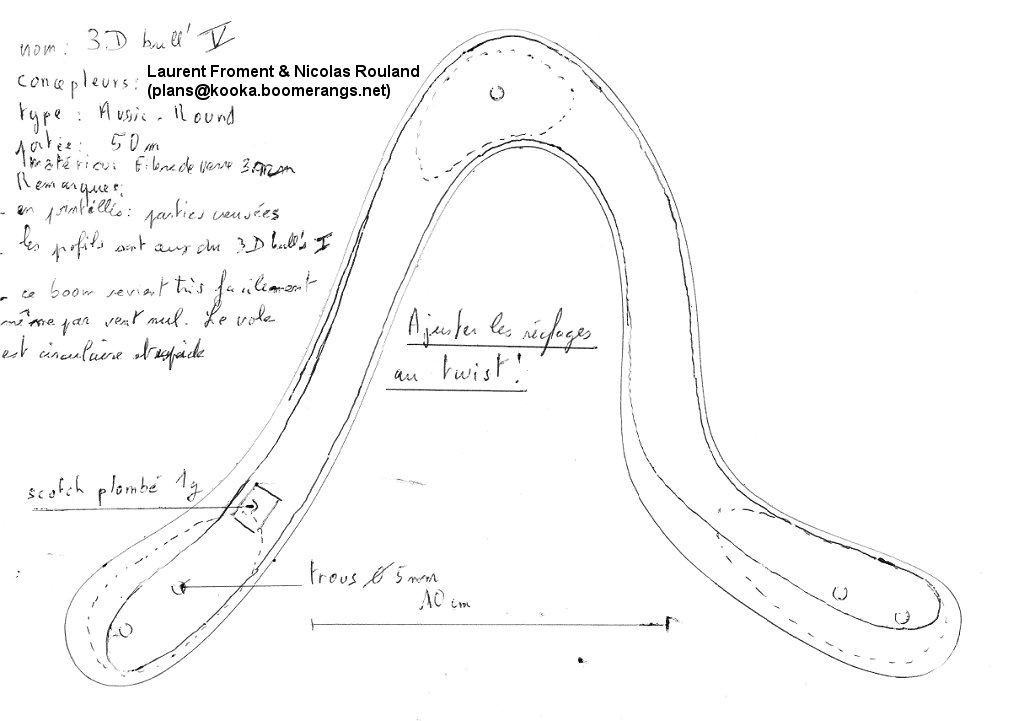 nom: 3D bull' V
concepteurs: Laurent Froment & Nicolas Rouland
(plans@kooka.boomerangs.net)
type: Aussie-Round
portée: 50 m
matériau: Fibre de verre 3 mm
Remarques:
- en pointillés: parties creusées
- les profils sont ceux du 3D bull's I
- ce boom revient très facilement
même par vent nul. Le vole
est circulaire et rapide
Ajuster les réglages
au twist!
scotch plombé 1g
trous Ø 5mm
10 cm